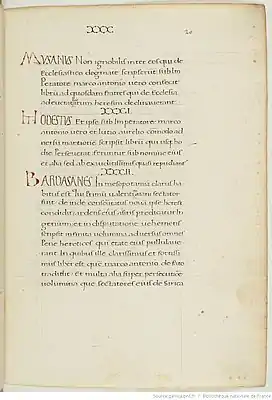 XXX
20
MUSANUS Non ignobilis inter eos qui de
ecclesiastico dogmate scripserunt sub im
peratore marco antonio uero confecit
librum ad quosdam fratres qui de ecclesia
ad encratitarum heresim declinauerant
XXXI
MODESTUS Et ipse sub imperatore marco
antonio uero et lucio aurelio comodo ad
uersum martionem scripsit librum qui usq; ho
die perseuerat feruntur sub nomine eius
et alia sed ab eruditis quasi repudiant
XXXII
BARDASANES In mesopotamia clarus ha
bitus est qui primum ualentini sectator
fuit deinde confutatus noua ipse heresi
condidit ardens eius a siris predicatur in
genium et in disputatione uehemens
scripsit infinita uolumina aduersus omnes
pene hereticos qui etate eius pullulaue
rant In quibus ille clarissimus et fortissi
mus liber est que marco antonio de fato
tradidit et multa alia super persecutione
uolumina que sectatores eius de sira
Source gallica.bnf.fr / Bibliothèque nationale de France